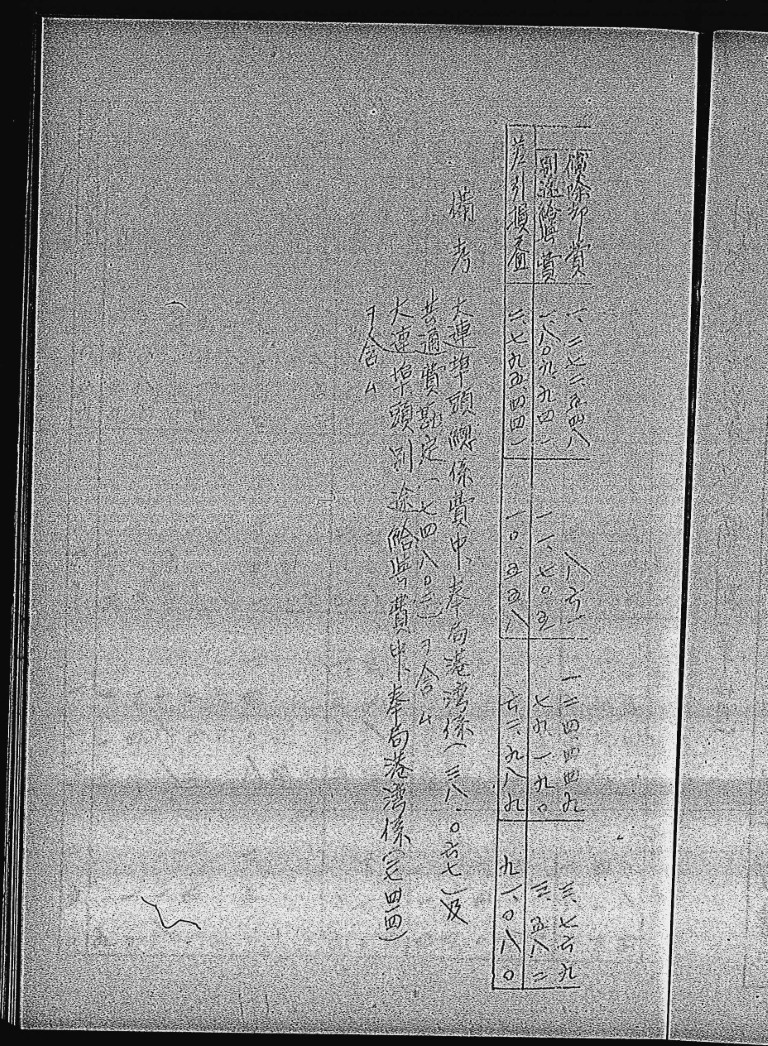 償除却費 一、二七二、五四八 八六一 一二四、四四九 三、七六九
別途給與費 一、八〇九、九四一 一一、七〇五 七九、一九〇 三、五八二
差引損益 二、七九五、四四一 一〇、五五八 六二、九八九 九一、〇八〇
備考 大連埠頭關係費中、奉局港湾係(三八、〇六七)及
共通費勘定 ヲ含ム
大連埠頭別途給與費中、奉局港湾係(七四四)
ヲ含ム